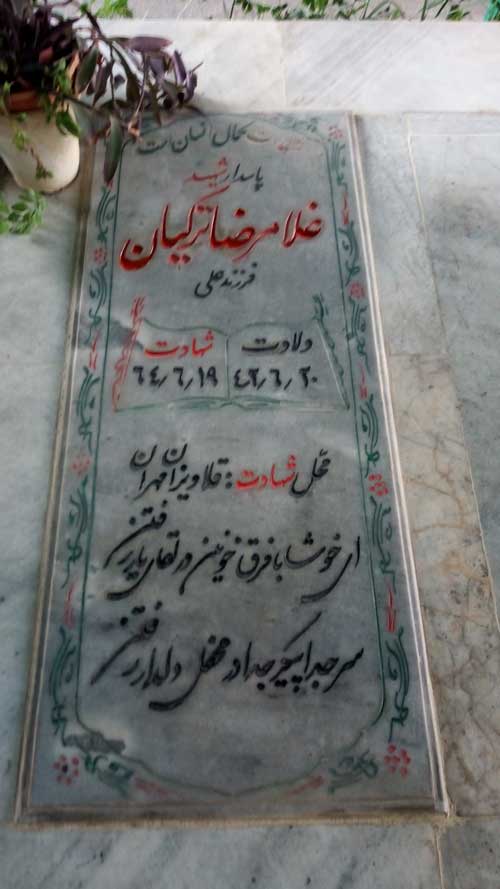 کمال انسان است
پاسدار شهید
غلامرضا ترکیان
فرزند علی
ولادت شهادت
۴۲/۶/۲۰ ۶۴/۶/۱۹
محل شهادت: قلاویزان مهران
ای خوشا با فرق خونین در لقای یار رفتن
سر جدا پیکر جدا در محفل دلدار رفتن